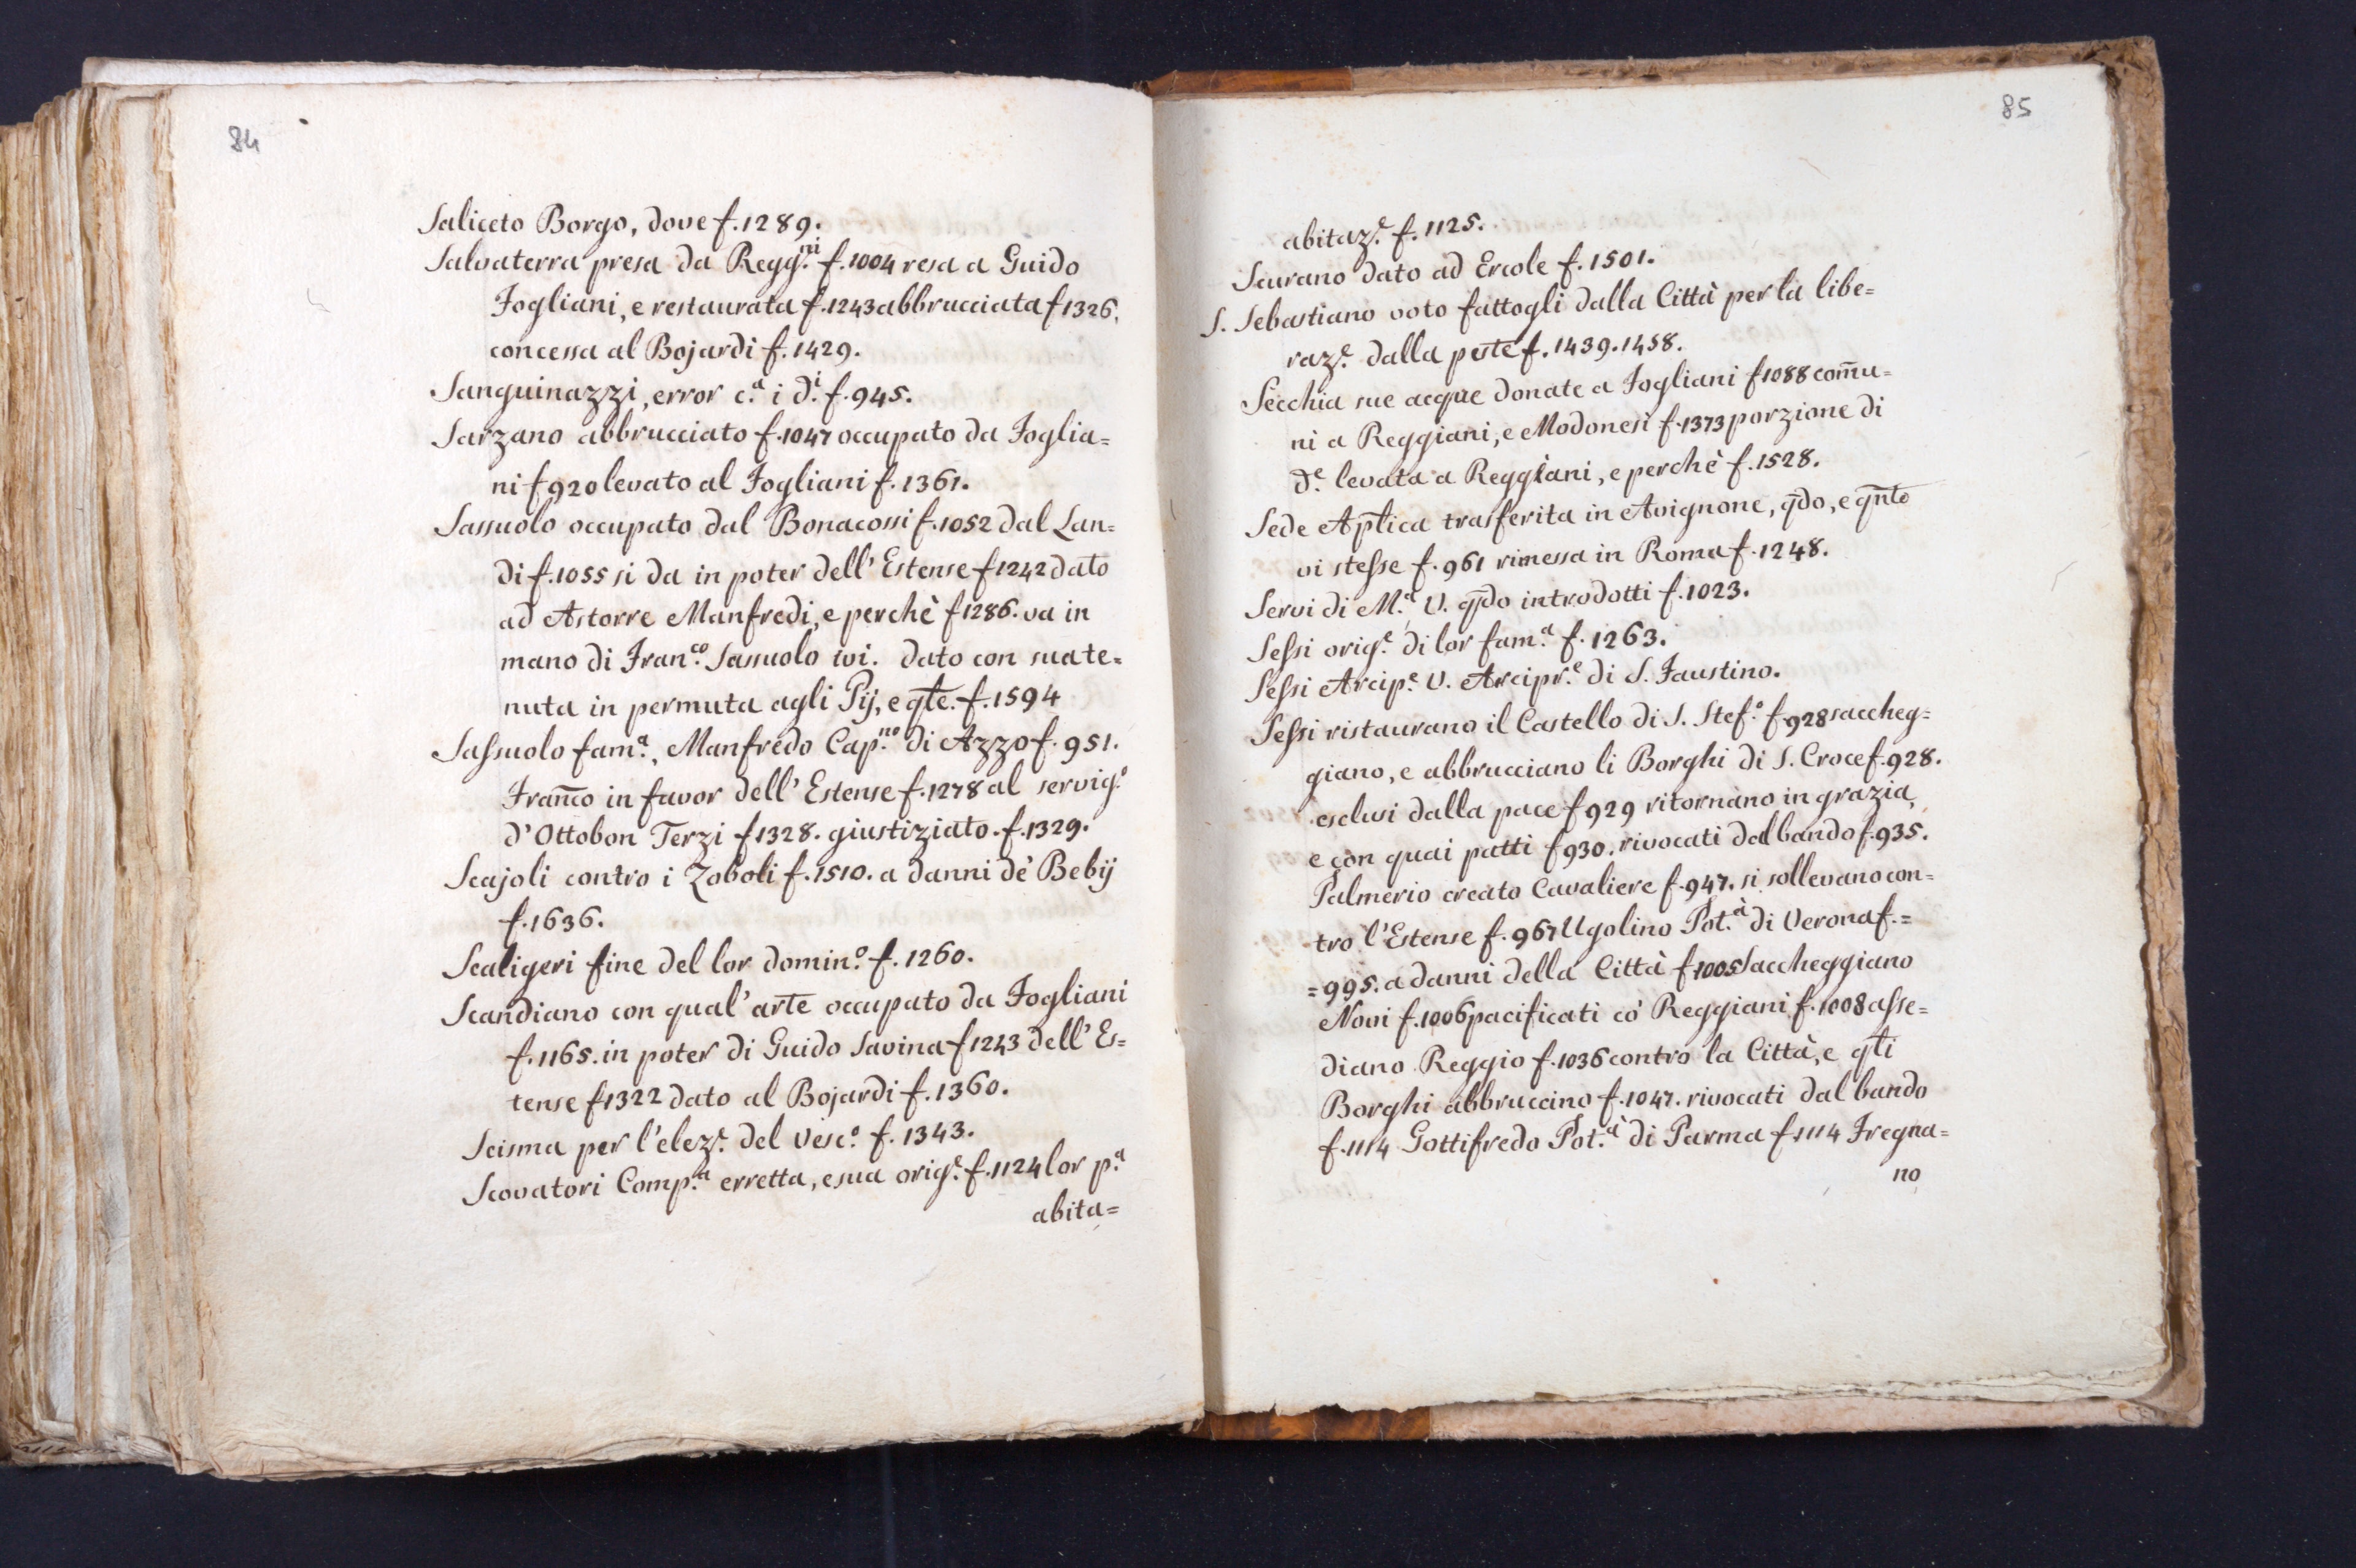 84
Saliceto Borgo, dove f. 1289.
Salvaterra presa da Regg.ni f. 1004 resa a Guido
Fogliani, e restaurata f. 1243 abbrucciata f 1326.
concessa al Bojardi f. 1429.
Sanguinazzi, error c.a i d.i f. 945.
Sarzano abbrucciato f. 1047 occupato da Foglia=
ni f 920 levato al Fogliani f. 1361.
Sassuolo occupato dal Bonacossi f. 1052 dal Lan=
di f. 1055 si da in poter dell' Estense f 1242 dato
ad Astorre Manfredi, e perchè f 1286. va in
mano di Fran.co Sassuolo ivi. dato con sua te=
nuta in permuta agli Pij, e q̄te. f. 1594
Saſsuolo fam.a, Manfredo Cap.no di Azzo f. 951.
Fran̄co in favor dell' Estense f. 1278 al servig.o
d' Ottobon Terzi f 1328. giustiziato. f. 1329.
Scajoli contro i Zoboli f. 1510. a danni de' Bebij
f. 1636.
Scaligeri fine del lor domin.o f. 1260.
Scandiano con qual' arte occupato da Fogliani
f. 1165. in poter di Guido Savina f 1243 dell' Es=
tense f 1322 dato al Bojardi f. 1360.
Scisma per l'elez.e del Vesc.o f. 1343.
Scovatori Comp.a erretta, e sua orig.e f. 1124 lor p.a
abita=
85
abitaz.e f. 1125.
Scurano dato ad Ercole f. 1501.
S. Sebastiano voto fattogli dalla Città per la libe=
raz.e dalla peste f. 1439. 1458.
Secchia sue acque donate a Fogliani f 1088 com̄u=
ni a Reggiani, e Modonesi f. 1373 porzione di
d.e levata a Reggiani, e perchè f. 1528.
Sede Ap̄lica trasferita in Avignone, q̄do, e q̄nto
vi steſse f. 961 rimessa in Roma f. 1248.
Servi di M.a V. q̄do introdotti f. 1023.
Seſsi orig.e di lor fam.a f. 1263.
Seſsi Arcip.e V. Arcipr.e di S. Faustino.
Seſsi ristaurano il Castello di S. Stef.o f 928 saccheg=
giano, e abbrucciano li Borghi di S. Croce f. 928.
esclusi dalla pace f 929 ritornano in grazia,
e con quai patti f 930. rivocati dal bando f. 935.
Palmerio creato Cavaliere f. 947. si sollevano con=
tro l'Estense f. 967 Ugolino Pot.à di Verona f.=
=995. a danni della Città f 1005 Saccheggiano
Novi f. 1006 pacificati co' Reggiani f. 1008 aſse=
diano Reggio f. 1036 contro la Città, e q̄ti
Borghi abbruccino f. 1047. rivocati dal bando
f. 1114 Gottifredo Pot.à di Parma f 1114 Fregna=
no